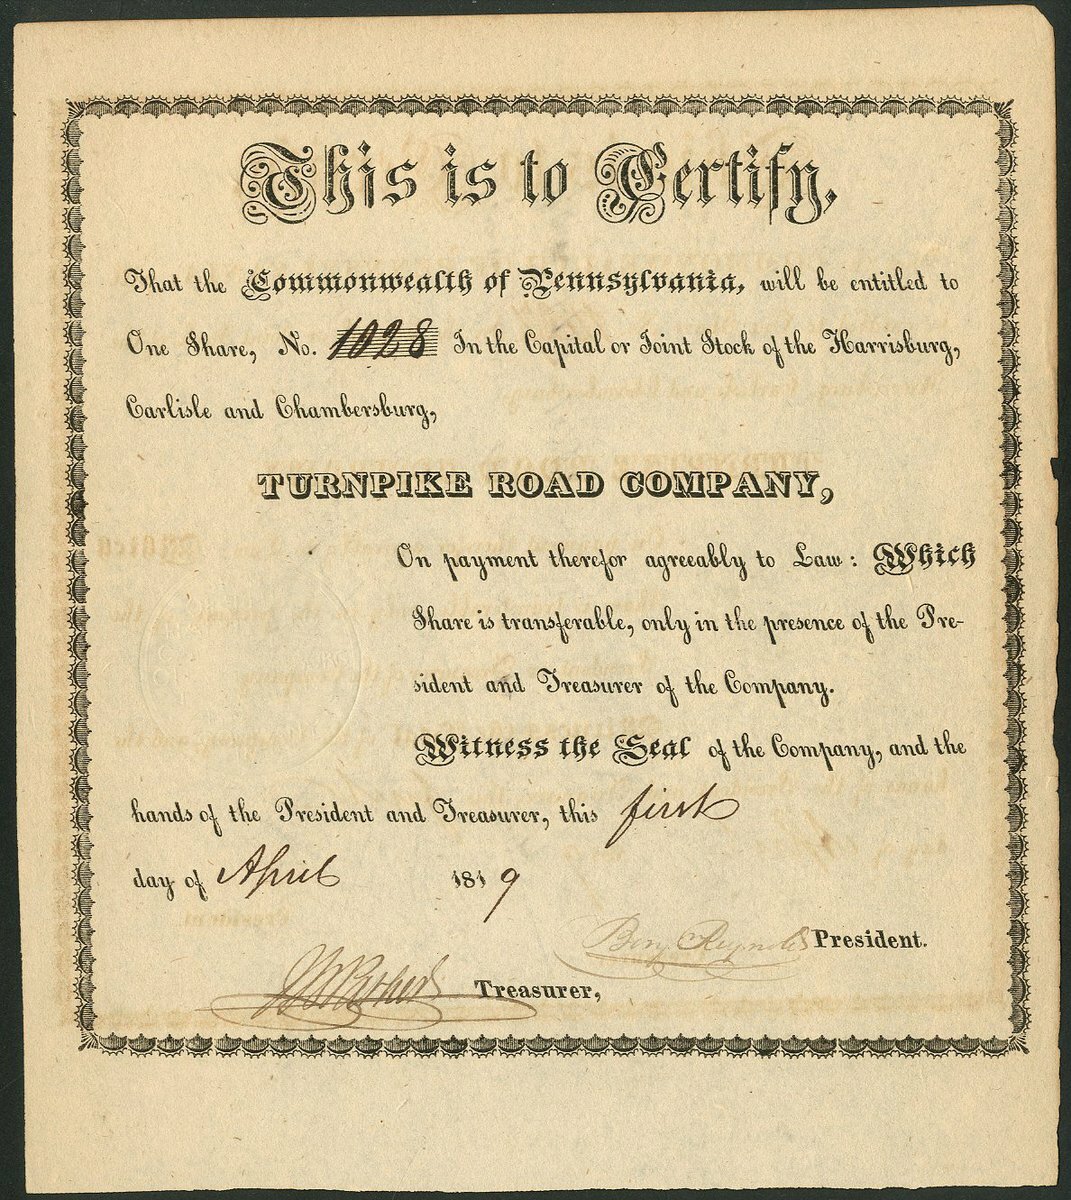 This is to Certify,
That the Commonwealth of Pennsylvania, will be entitled to
One Share, No. 1028 In the Capital or Joint Stock of the Harrisburg,
Carlisle and Chambersburg,
TURNPIKE ROAD COMPANY,
On payment therefor agreeably to Law: Which
Share is transferable, only in the presence of the Pre-
sident and Treasurer of the Company.
Witness the Seal of the Company, and the
hands of the President and Treasurer, this first
day of April 1819
Benj Reynolds President.
Treasurer,